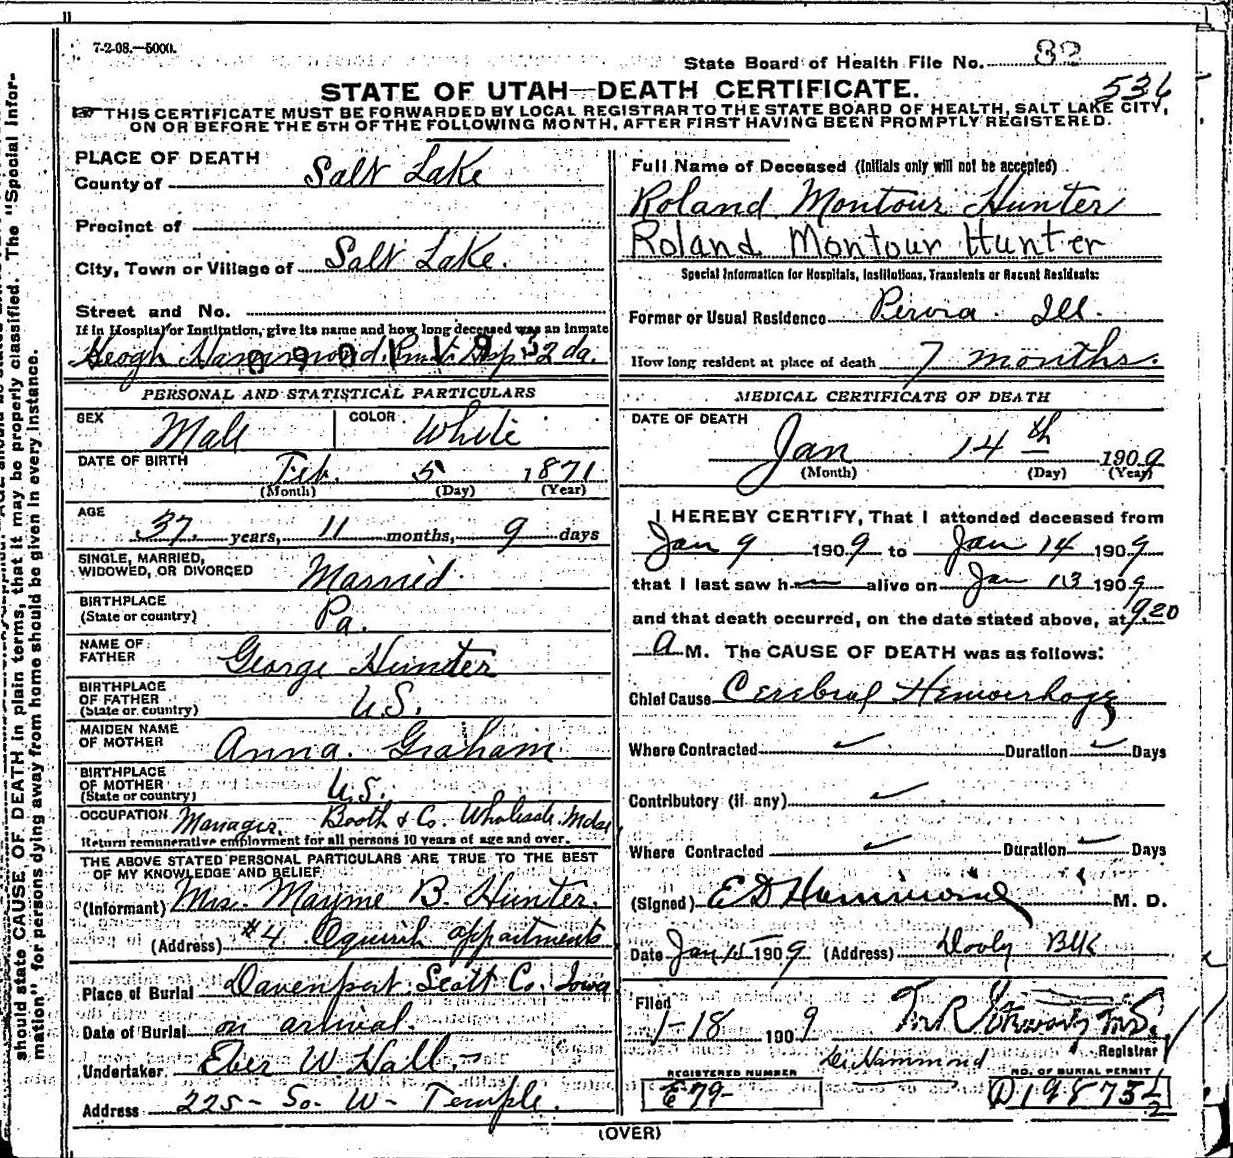 11
7-2-08.—5000.
State Board of Health File No. 32
536
STATE OF UTAH—DEATH CERTIFICATE.
THIS CERTIFICATE MUST BE FORWARDED BY LOCAL REGISTRAR TO THE STATE BOARD OF HEALTH, SALT LAKE CITY,
ON OR BEFORE THE 5TH OF THE FOLLOWING MONTH, AFTER FIRST HAVING BEEN PROMPTLY REGISTERED.
should state CAUSE OF DEATH in plain terms, that it may be properly classified. The "Special Infor-
mation" for persons dying away from home should be given in every instance.
PLACE OF DEATH
County of Salt Lake
Precinct of
City, Town or Village of Salt Lake.
Street and No.
If in Hospital or Institution, give its name and how long deceased was an inmate
Keogh Hammond Hsp. 2 da.
0901193
PERSONAL AND STATISTICAL PARTICULARS
SEX Male COLOR White
DATE OF BIRTH Feb. 5 1871
(Month) (Day) (Year)
AGE
37 years, 11 months, 9 days
SINGLE, MARRIED,
WIDOWED, OR DIVORCED Married.
BIRTHPLACE
(State or country) Pa.
NAME OF
FATHER George Hunter
BIRTHPLACE
OF FATHER
(State or country) U.S.
MAIDEN NAME
OF MOTHER Anna Graham
BIRTHPLACE
OF MOTHER
(State or country) U.S.
OCCUPATION Manager. Booth & Co. Wholesale Mdse
Return remunerative employment for all persons 10 years of age and over.
THE ABOVE STATED PERSONAL PARTICULARS ARE TRUE TO THE BEST
OF MY KNOWLEDGE AND BELIEF
(Informant) Mrs. Mayme B. Hunter.
(Address) #4 Oquirrh appartments
Place of Burial Davenport. Scott Co. Iowa
Date of Burial on arrival.
Undertaker Eber W Hall
Address 225- So. W- Temple.
Full Name of Deceased (Initials only will not be accepted)
Roland Montour Hunter
Roland Montour Hunter
Special Information for Hospitals, Institutions, Transients or Recent Residents:
Former or Usual Residence Peroria. Ill.
How long resident at place of death 7 months.
MEDICAL CERTIFICATE OF DEATH
DATE OF DEATH
Jan 14th 1909
(Month) (Day) (Year)
I HEREBY CERTIFY, That I attended deceased from
Jan 9 1909 to Jan 14 1909
that I last saw h— alive on Jan 13 1909
and that death occurred, on the date stated above, at 9.20
A M. The CAUSE OF DEATH was as follows:
Chief Cause Cerebral Hemorrhage
Where Contracted Duration Days
Contributory (if any)
Where Contracted Duration Days
(Signed) E D Hammond M. D.
Date Jan 15 1909 (Address) Dooly Blk
Filed
1-18 1909
Registrar
Dr Hammond
REGISTERED NUMBER
E 79-
NO. OF BURIAL PERMIT
D19873½
(OVER)